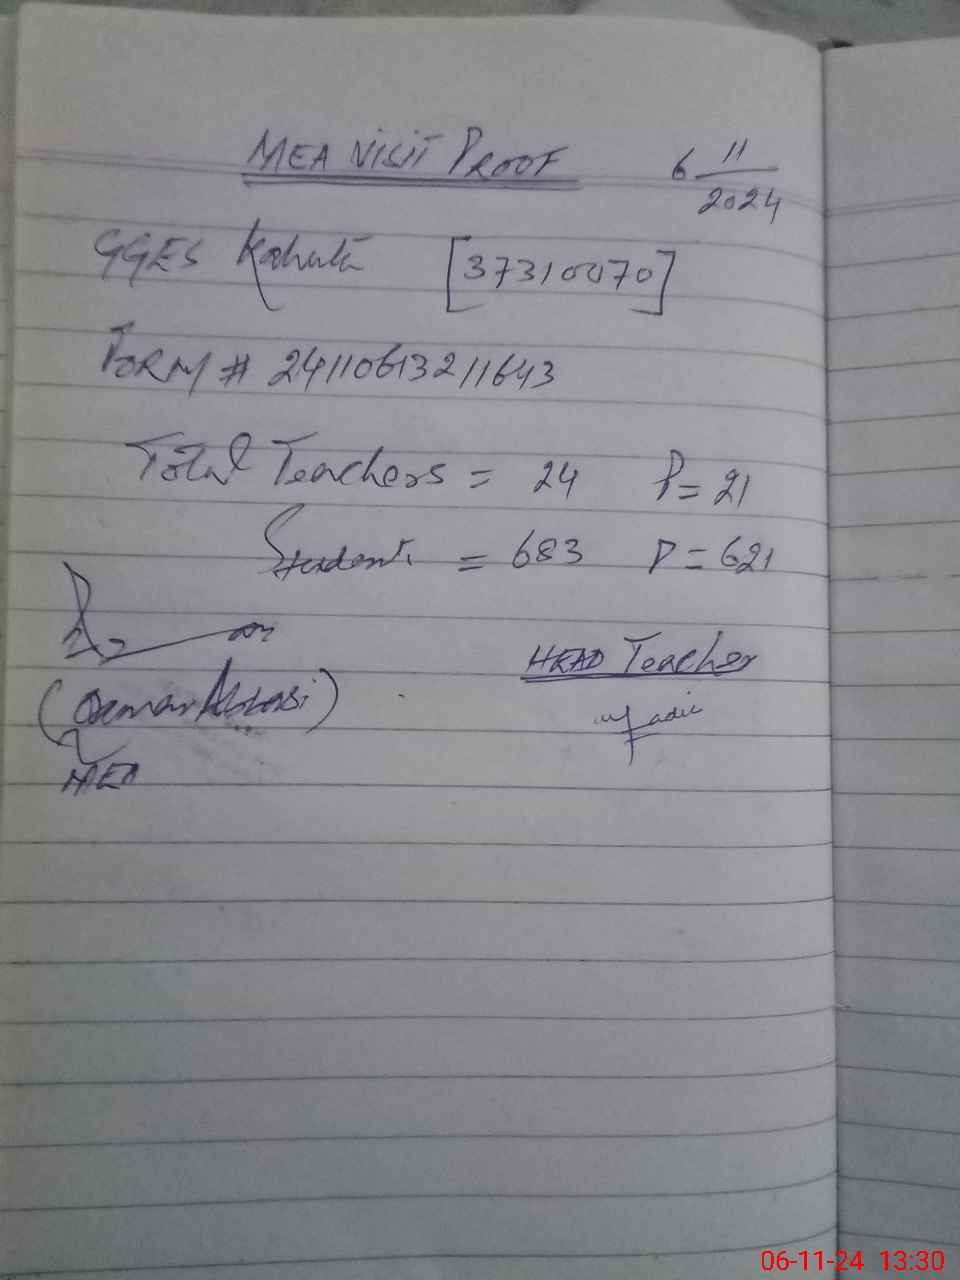 MEA VISIT PROOF 6 11/2024
GGES Kahuta [37310070]
FORM # 24110613211643
Total Teachers = 24 P = 21
Students = 683 P = 621
HEAD Teacher
(Osman Abbasi)
MEA
06-11-24 13:30